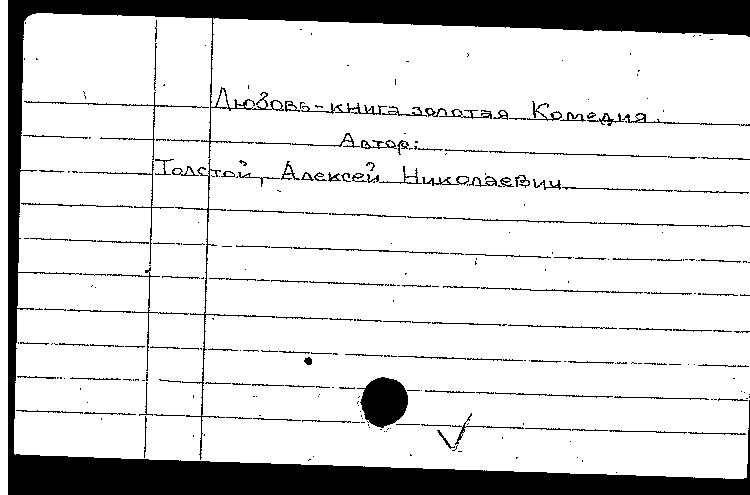 Любовь-книга золотая Комедия.
Автор:
Толстой, Алексей Николаевич